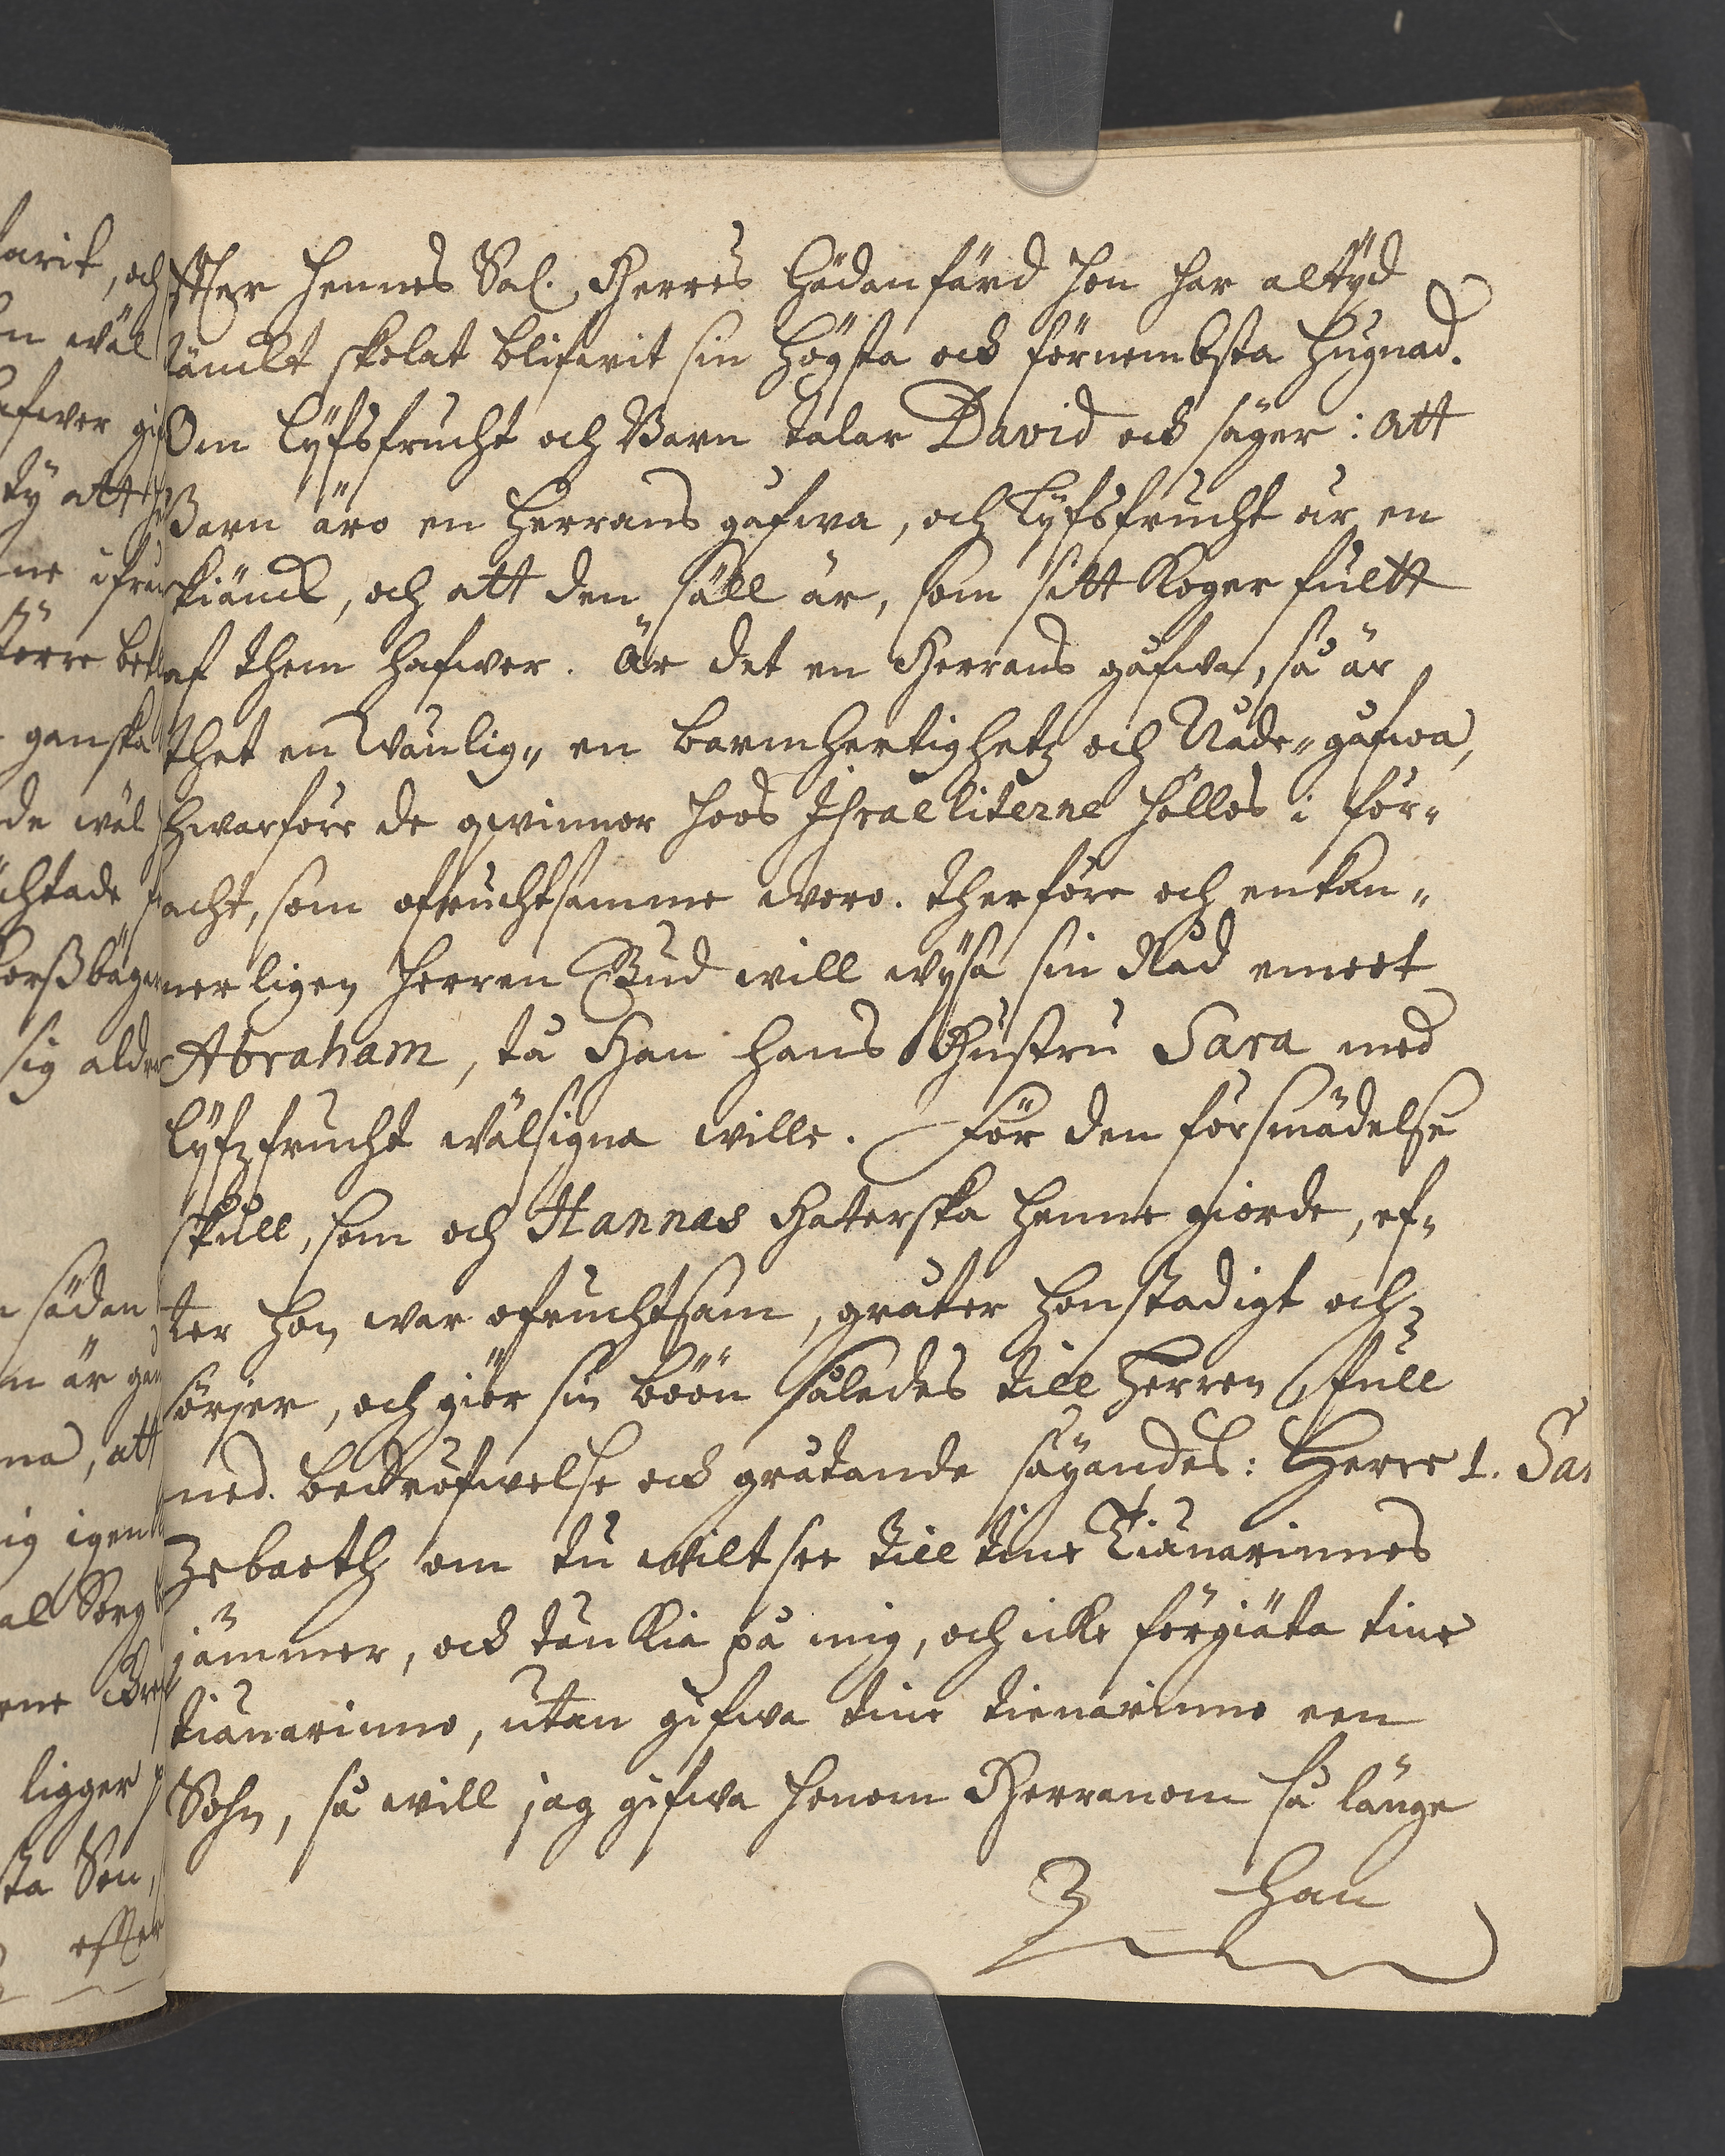 effter hennes Sal. Herres hädanfärd hon har altijd
tänckt skolat blifwit sin högsta ock förnembsta hugnad.
Om lijfsfrucht och Barn talar David ock säger: att
Barn äro en Herrans gåfwa, och lijfsfrucht är en
skiänck, och att den säll är, som sitt Koger fullt
af them hafwer. Är det en Herrans gåfwa, så är
thet en Wänlig„ en barmhertighetz och Nåde„gåfwa,
hwarföre de qwinnor hoos Israeliterne höllos i för„
acht, som ofruchtsamme woro. therföre och enkan„
nerligen Herren Gud will wijsa sin Nåd emoot
Abraham, tå Han hans Hustru Sara med
lijfzfrucht wälsigna wille. För den försmädelse
skull, som och Hannas Haterska henne giorde, ef„
ter hon war ofruchtsam, gråter hon stadigt och
sörjer, och giör sin böön således till Herren full
med bedröfwelse ock gråtande säyandes: Herre 1. Sa
Zebaoth om tu wilt see till tine Tiänarinnes
jämmer, ock tänckia på mig, och icke förgiäta tine
tiänarinno, utan gifwa tine tienarinno een
Sohn, så will jag gifwa honom Herranom så länge
han